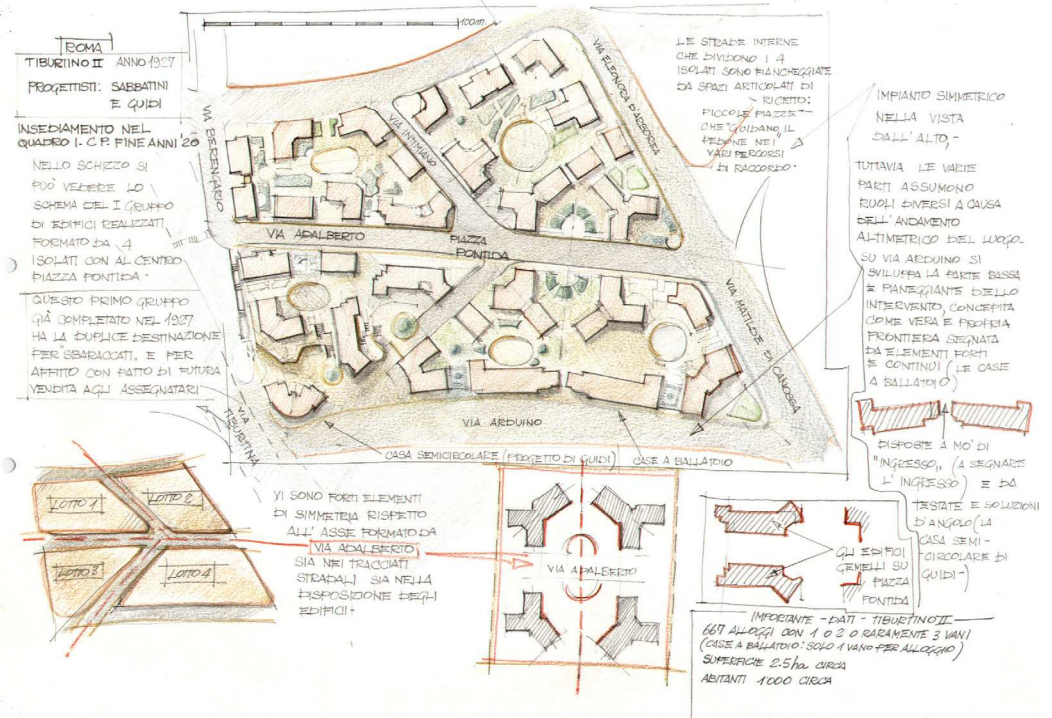 ROMA
TIBURTINO II ANNO 1927
PROGETTISTI: SABBATINI
E GUIDI
INSEDIAMENTO NEL
QUADRO I.C.P. FINE ANNI '20
NELLO SCHIZZO SI
PUÒ VEDERE LO
SCHEMA DEL I GRUPPO
DI EDIFICI REALIZZATI
FORMATO DA 4
ISOLATI CON AL CENTRO
PIAZZA PONTIDA.
QUESTO PRIMO GRUPPO
GIÀ COMPLETATO NEL 1927
HA LA DUPLICE DESTINAZIONE
PER SBARACCATI, E PER
AFFITTO CON PATTO DI FUTURA
VENDITA AGLI ASSEGNATARI
100m.
VIA BERENGARIO
VIA INTIMIANO
VIA ELEONORA D'ARBOREA
VIA ADALBERTO
PIAZZA
PONTIDA
VIA MATILDE DI CANOSSA
VIA ARDUINO
VIA
TIBURTINA
CASA SEMICIRCOLARE (PROGETTO DI GUIDI)
CASE A BALLATOIO
LE STRADE INTERNE
CHE DIVIDONO I 4
ISOLATI SONO FIANCHEGGIATE
DA SPAZI ARTICOLATI DI
RICETTO:
PICCOLE PIAZZE
CHE GUIDANO IL
PEDONE NEI
VARI PERCORSI
DI RACCORDO.
IMPIANTO SIMMETRICO
NELLA VISTA
DALL'ALTO,-
TUTTAVIA LE VARIE
PARTI ASSUMONO
RUOLI DIVERSI A CAUSA
DELL'ANDAMENTO
ALTIMETRICO DEL LUOGO.
SU VIA ARDUINO SI
SVILUPPA LA PARTE BASSA
E PIANEGGIANTE DELLO
INTERVENTO, CONCEPITA
COME VERA E PROPRIA
FRONTIERA SEGNATA
DA ELEMENTI FORTI
E CONTINUI (LE CASE
A BALLATOIO)
DISPOSTE A MO' DI
"INGRESSO,, (A SEGNARE
L'INGRESSO) E DA
TESTATE E SOLUZIONI
D'ANGOLO (LA
CASA SEMI-
CIRCOLARE DI
GUIDI-)
LOTTO 1
LOTTO 2
LOTTO 3
LOTTO 4
VI SONO FORTI ELEMENTI
DI SIMMETRIA RISPETTO
ALL'ASSE FORMATO DA
VIA ADALBERTO
SIA NEI TRACCIATI
STRADALI SIA NELLA
DISPOSIZIONE DEGLI
EDIFICI-
VIA ADALBERTO
GLI EDIFICI
GEMELLI SU
PIAZZA
PONTIDA
IMPORTANTE - DATI - TIBURTINO II
667 ALLOGGI CON 1 O 2 O RARAMENTE 3 VANI
(CASE A BALLATOIO: SOLO 1 VANO PER ALLOGGIO)
SUPERFICIE 2.5 ha CIRCA
ABITANTI 1000 CIRCA